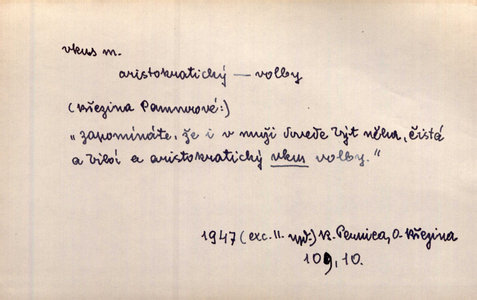 vkus m.
aristokratický — volby
(Březina Pammrové:)
„zapomínáte, že i v muži dovede být něha, čistá
a bílá a aristokratický vkus volby.“
1947 (exc. II. vyd.) K. Pernica, O. Březina
109, 10.